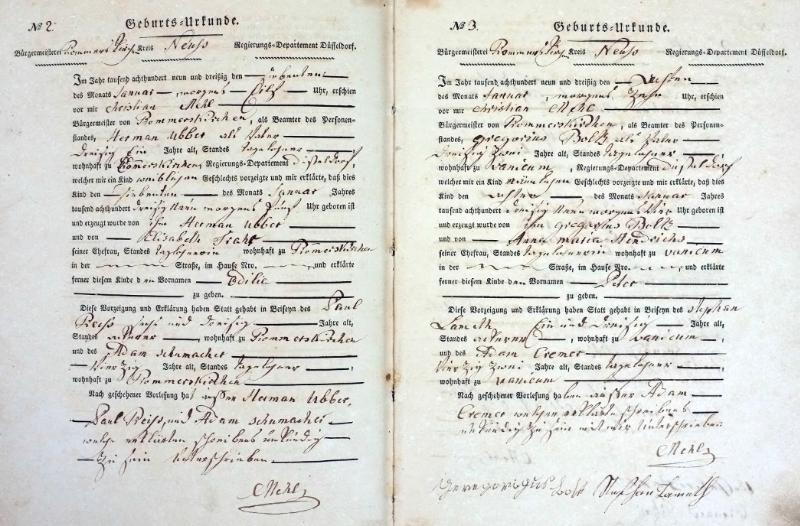 No 2. Geburts-Urkunde.
Bürgermeisterei Kreis Neuss Regierungs-Departement Düsseldorf.
Im Jahr tausend achthundert neun und dreißig den siebenten
des Monats Januar morgens Uhr, erschien
vor mir Christian Mehl
Bürgermeister von Rommerskirchen, als Beamter des Personen-
standes, Herman Ubber als Vater
Dreisig Ein Jahre alt, Standes tagelohner
wohnhaft zu Regierungs-Departement Düsseldorf,
welcher mir ein Kind weiblichen Geschlechts vorzeigte und mir erklärte, daß dies
Kind den siebenten des Monats Januar Jahres
tausend achthundert dreisig Neun morgens fünf Uhr geboren ist
und erzeugt wurde von ihm Herman Ubber
und von Elisabeth
seiner Ehefrau, Standes wohnhaft zu Rommerskirchen
in der Straße, im Hause Nro. und erklärte
ferner diesem Kinde den Vornamen Odilie
zu geben.
Diese Vorzeigung und Erklärung haben Statt gehabt in Beiseyn des Paul
Reiss sechs und dreisig Jahre alt,
Standes wohnhaft zu Rommerskirchen
und des Adam Schumacher
Vierzig Jahre alt, Standes tagelohner
wohnhaft zu Rommerskirchen
Nach geschehener Vorlesung hat Herman Ubber,
Paul Reiss, und Adam Schumacher
welche erklärten schreibens unkündig
zu sein unterschrieben
Mehl
No 3. Geburts-Urkunde.
Bürgermeisterei Kreis Neuss Regierungs-Departement Düsseldorf.
Im Jahr tausend achthundert neun und dreißig den
des Monats Januar, morgens zehn Uhr, erschien
vor mir Christian Mehl
Bürgermeister von Rommerskirchen, als Beamter des Personen-
standes, Gregorius Boltz als Vater
Dreisig zwei Jahre alt, Standes tagelohner
wohnhaft zu Vanicum, Regierungs-Departement Düsseldorf
welcher mir ein Kind männlichen Geschlechts vorzeigte und mir erklärte, daß dies
Kind den des Monats Januar Jahres
tausend achthundert dreisig Neun morgens vier Uhr geboren ist
und erzeugt wurde von ihm Gregorius Boltz
und von Anna Maria Hendrichs
seiner Ehefrau, Standes wohnhaft zu Vanicum
in der Straße, im Hause Nro. und erklärte
ferner diesem Kinde den Vornamen Peter
zu geben.
Diese Vorzeigung und Erklärung haben Statt gehabt in Beiseyn des Stephan
Ein und dreisig Jahre alt,
Standes wohnhaft zu Vanicum,
und des Adam Cremer
Vierzig zwei Jahre alt, Standes tagelohner
wohnhaft zu Vanicum
Nach geschehener Vorlesung haben ausser Adam
Cremer welcher erklärte schreibens
unkündig zu sein mit mir unterschrieben
Mehl